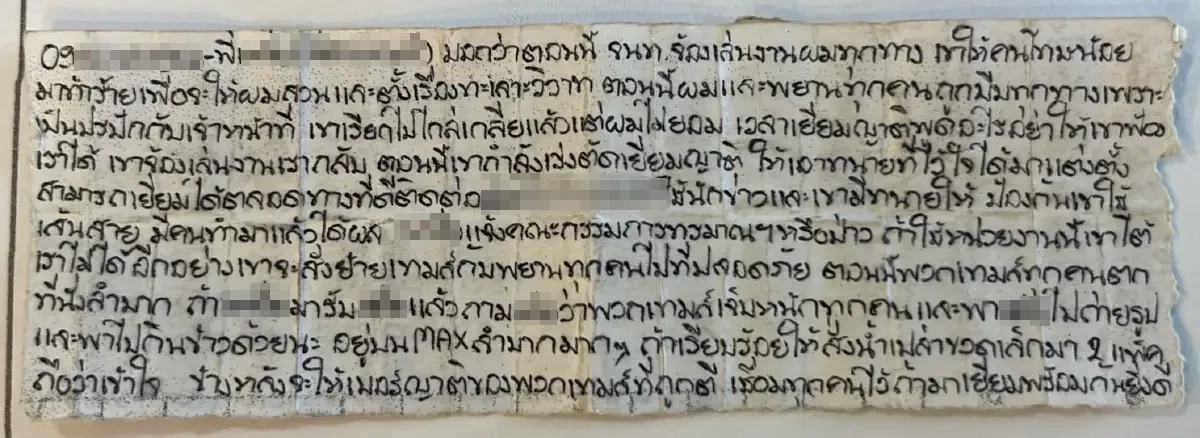 09 -พี่ ) บอกว่าตอนนี้ จนท.จ้องเล่นงานผมทุกทาง เขาให้คนโทษน้อย
มาทำร้ายเพื่อจะให้ผมสวน และตั้งเรื่องทะเลาะวิวาท ตอนนี้ผมและพยานทุกคนถูกบีบทุกทางเพราะ
เป็นปรปักกับเจ้าหน้าที่ เขาเรียกไปไกล่เกลี่ยแล้วแต่ผมไม่ยอม เวลาเยี่ยมญาติพูดอะไรอย่าให้เขาฟ้อง
เราได้ เขาจ้องเล่นงานเรากลับ ตอนนี้เขากำลังเร่งตัดเยี่ยมญาติ ให้เอาทนายที่ไว้ใจได้มาแต่งตั้ง
สามารถเยี่ยมได้ตลอดทางที่ดีติดต่อ ใช้นักข่าวและเขามีทนายให้ ป้องกันเขาใช้
เส้นสาย มีคนทำมาแล้วได้ผล แจ้งคณะกรรมการทรมาณฯหรือป่าว ถ้าใช้หน่วยงานนี้เขาโต้
เราไม่ได้ อีกอย่างเขาจะสั่งย้ายเทมส์กับพยานทุกคนไปที่ปลอดภัย ตอนนี้พวกเทมส์ทุกคนตก
ที่นั่งลำบาก ถ้า มารับ แล้วถาม ว่าพวกเทมส์เจ็บหนักทุกคน และพา ไปถ่ายรูป
และพาไปกินข้าวด้วยนะ อยู่บน MAX ลำบากมากๆ ถ้าเรียบร้อยให้สั่งน้ำเปล่าขวดเล็กมา 2 แพ็ค
ถือว่าเข้าใจ ข้างหลังจะให้เบอร์ญาติของพวกเทมส์ที่ถูกตี เชื่อมทุกคนไว้ถ้ามาเยี่ยมพร้อมกันยิ่งดี